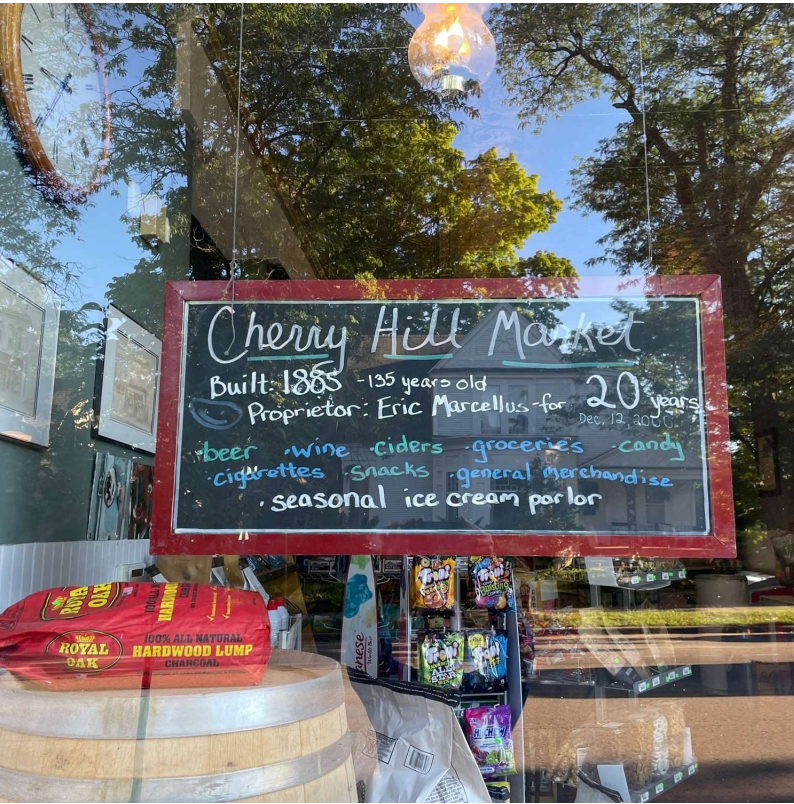 Cherry Hill Market
Built: 1885 - 135 years old
Proprietor: Eric Marcellus - for 20 years
Dec. 12, 2000
· beer · wine · ciders · groceries · candy
· cigarettes · snacks · general merchandise
· seasonal ice cream parlor
ROYAL OAK
HARDWOOD
ROYAL OAK
100% ALL NATURAL
HARDWOOD LUMP
CHARCOAL
Trolli
Trolli
Trolli
Trolli
HI-CHEW